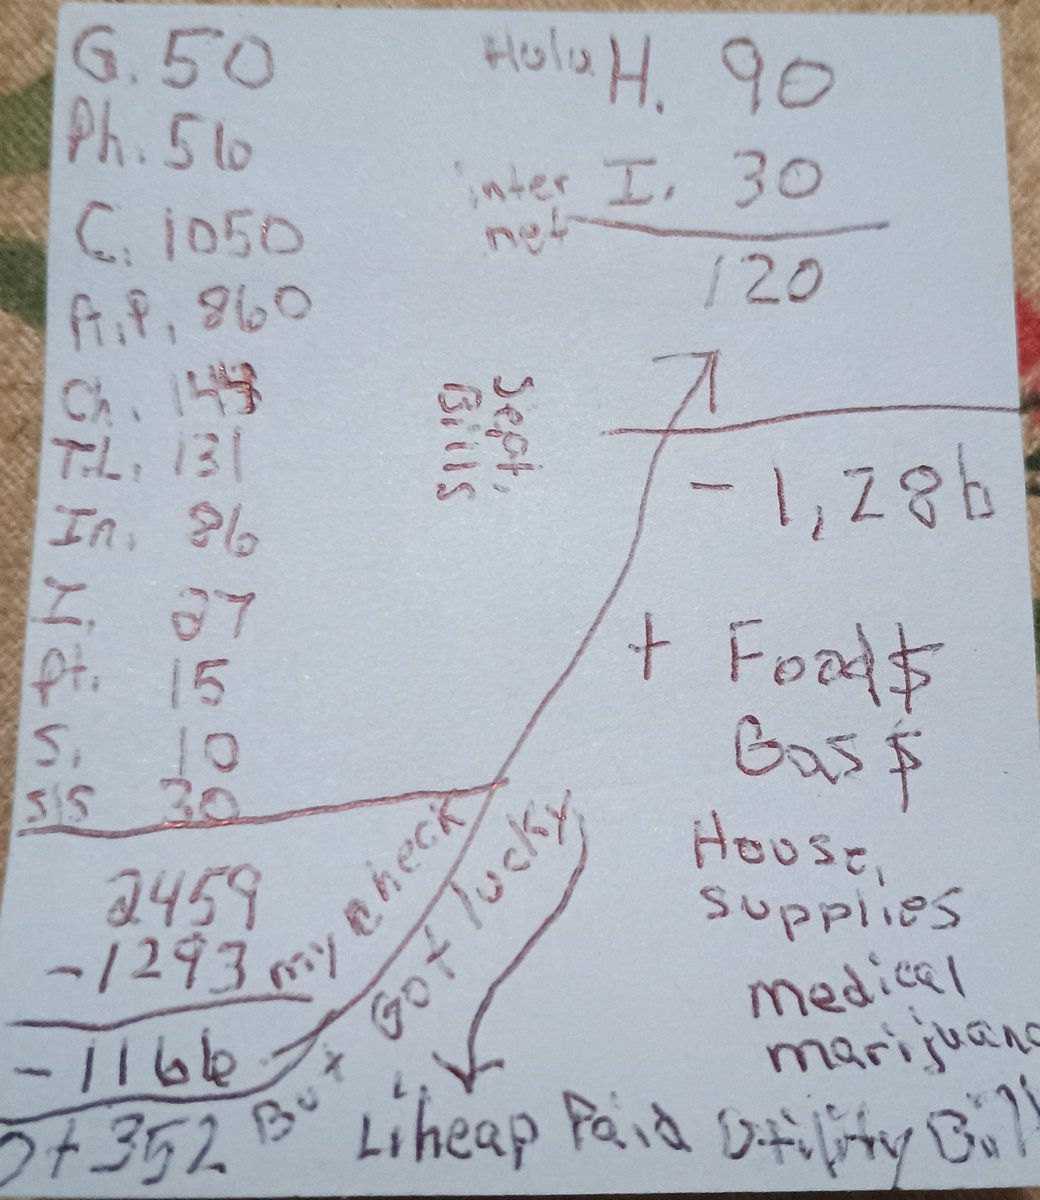 G. 50
Ph. 56
C. 1050
A.P. 860
Ch. 144
T.L. 131
In. 86
I. 27
Pt. 15
S. 10
SIS 30
2459
-1293 my check
-1166
+ 352
But Got lucky
Liheap Paid Utility Bill
Sept.
Bills
Hulu H. 90
inter
net
I. 30
120
- 1,286
+ Food $
Gas $
House,
supplies
medical
marijuana